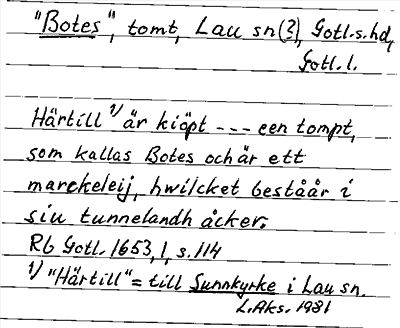 "Botes", tomt, Lau sn(?), Gotl.s.hd,
Gotl.l.
Härtill 1) är kiöpt --- een tompt,
som kallas Botes och är ett
marckeleij, hwilcket beståår i
siu tunnelandh åcker.
Rb Gotl. 1653, 1, s. 114
1) "Härtill" = till Sunnkyrke i Lau sn.
L.Aks. 1981